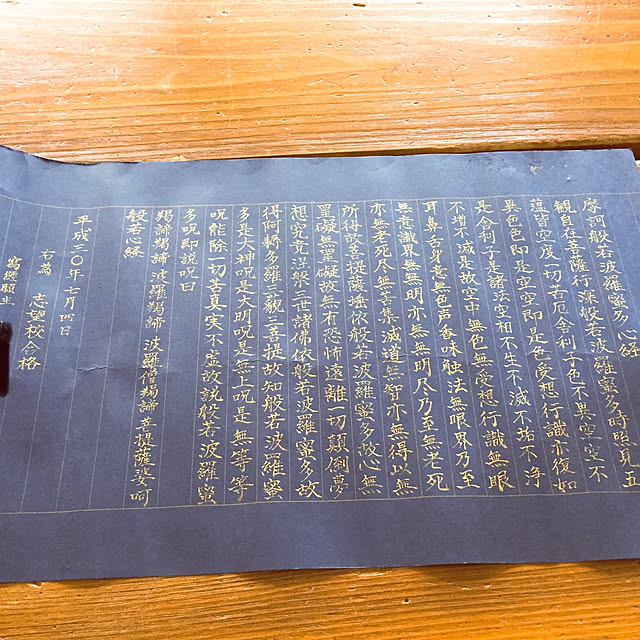 摩訶般若波羅蜜多心経
観自在菩薩行深般若波羅蜜多時照見五
蘊皆空度一切苦厄舎利子色不異空空不
異色色即是空空即是色受想行識亦復如
是舎利子是諸法空相不生不滅不垢不浄
不増不減是故空中無色無受想行識無眼
耳鼻舌身意無色声香味触法無眼界乃至
無意識界無無明亦無無明尽乃至無老死
亦無老死尽無苦集滅道無智亦無得以無
所得故菩提薩埵依般若波羅蜜多故心無
罣礙無罣礙故無有恐怖遠離一切顛倒夢
想究竟涅槃三世諸佛依般若波羅蜜多故
得阿耨多羅三藐三菩提故知般若波羅蜜
多是大神呪是大明呪是無上呪是無等等
呪能除一切苦真実不虚故説般若波羅蜜
多呪即説呪曰
羯諦羯諦 波羅羯諦 波羅僧羯諦 菩提薩婆呵
般若心経
平成三〇年七月四日
右為 志望校合格
寫經願主